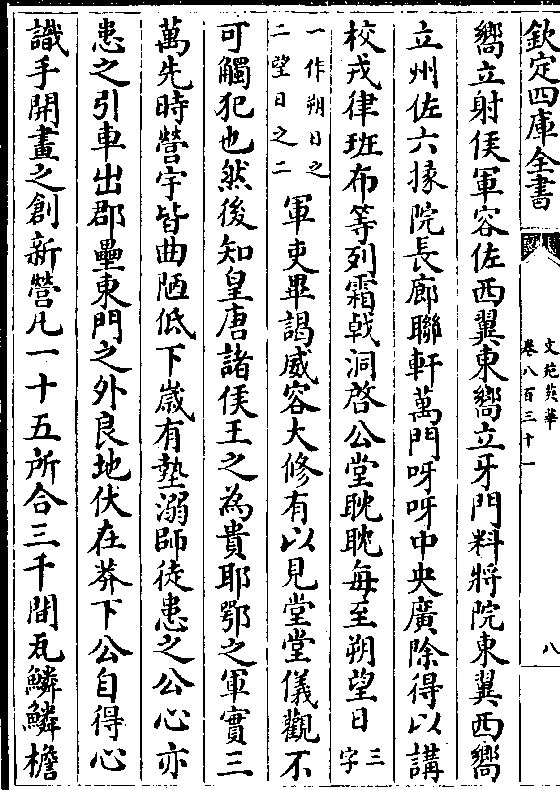 欽定四庫全書
文苑英華
卷八百三十一
八
嚮立射侯軍容佐西翼東嚮立牙門料將院東翼西嚮
立州佐六掾院長廊聯軒萬門呀呀中央廣除得以講
校戎律班布等列霜戟洞啓公堂耽耽每至朔望日三字
一作朔日之
二望日之二
軍吏畢謁威容大修有以見堂堂儀觀不
可觸犯也然後知皇唐諸侯王之為貴耶鄂之軍實三
萬先時營宇皆曲陋低下歳有墊溺師徒患之公心亦
患之引車出郡壘東門之外良地伏在莽下公自得心
識手開畫之創新營凡一十五所合三千間瓦鱗鱗檐